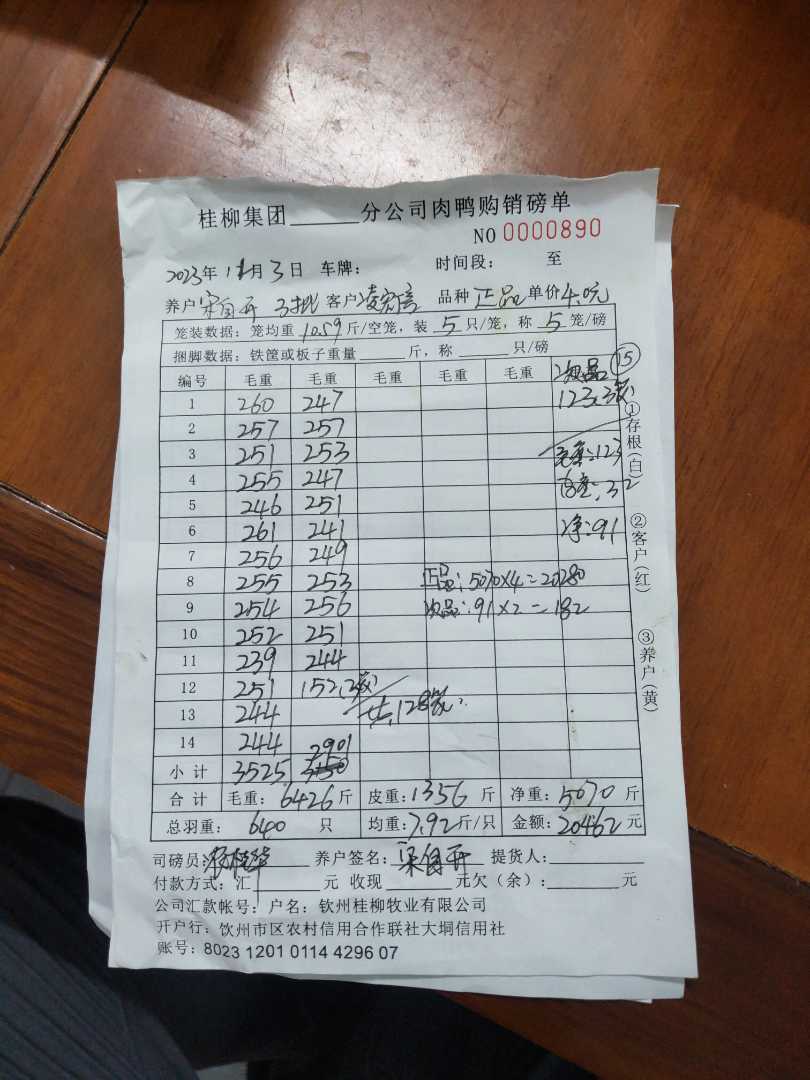 桂柳集团______分公司肉鸭购销磅单
NO 0000890
2023年 11月 3日 车牌： 时间段： 至
养户 宋自开 3批 客户 凌 品种 正品 单价 4.0元
笼装数据：笼均重 10.59 斤/空笼，装 5 只/笼，称 5 笼/磅
捆脚数据：铁筐或板子重量______斤，称______只/磅
编号 毛重 毛重 毛重 毛重 毛重 次品 15
1 260 247 123.3笼
2 257 257
3 251 253 毛重:123
4 255 247 皮重:32
5 246 251
6 261 241 净:91
7 256 249
8 255 253 正品:5070×4=20280
9 254 256 次品:91×2=182
10 252 251
11 239 244
12 251 152(3笼)
13 244 共128笼
14 244 2901
小计 3525 3150
合计 毛重：6426斤 皮重：1356斤 净重：5070斤
总羽重：640只 均重：7.92斤/只 金额：20462元
司磅员： 养户签名：宋自开 提货人：
付款方式：汇______元 收现______元欠（余）：______元
公司汇款帐号：户名：钦州桂柳牧业有限公司
开户行：饮州市区农村信用合作联社大垌信用社
账号：8023 1201 0114 4296 07
①存根(白)
②客户(红)
③养户(黄)